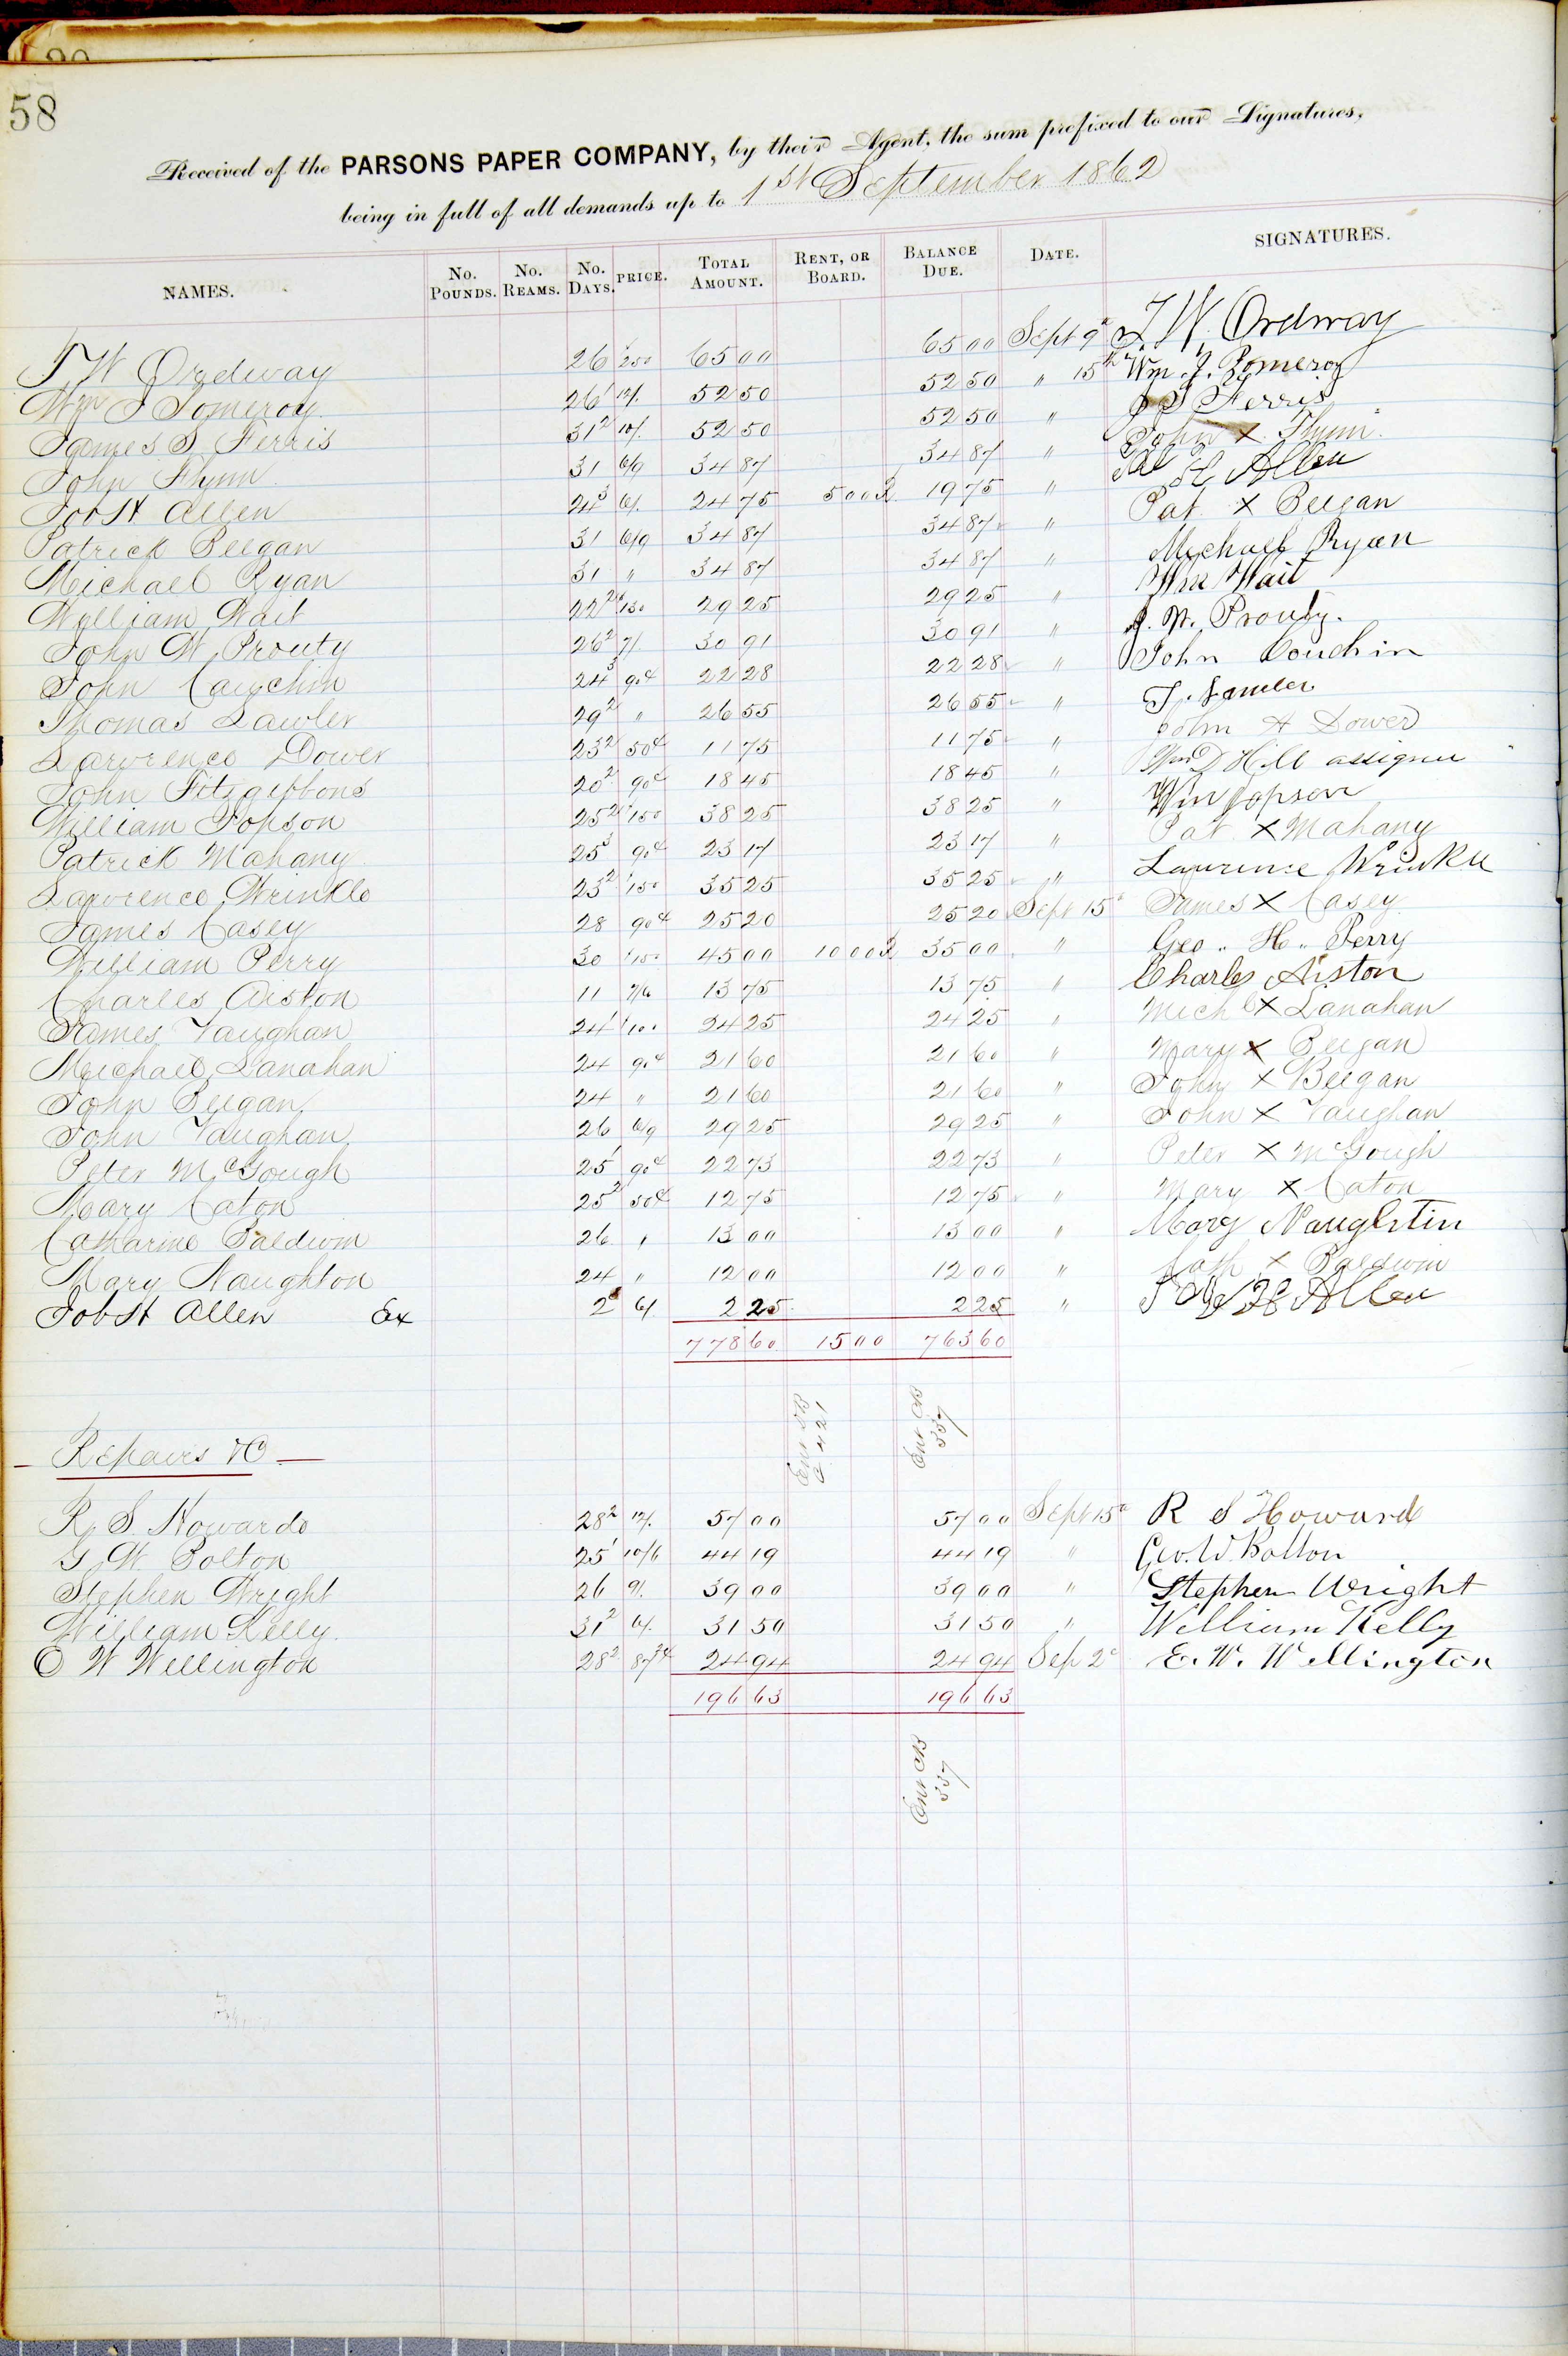 58
Received of the PARSONS PAPER COMPANY, by their Agent, the sum prefixed to our Signatures,
being in full of all demands up to 1st September 1862
NAMES. No. Pounds. No. Reams. No. Days. PRICE. Total Amount. Rent, or Board. Balance Due. Date. SIGNATURES.
T W Ordway 26 250 65 00 65 00 Sept 9 T. W. Ordway
Wm J Pomeroy 26¹ 12/. 52 50 52 50 " 15 Wm. J. Pomeroy
James S. Ferris 31² 10/. 52 50 52 50 " J S Ferris
John Flynn 31 6/9 34 87 34 87 " John X Flynn
Job H Allen 24³ 6/. 24 75 5 00 19 75 " H Allen
Patrick Beegan 31 6/9 34 87 34 87 " Pat X Beegan
Michael Ryan 31 " 34 87 34 87 " Michael Ryan
William Wait 22² 130 29 25 29 25 " Wm Wait
John W. Prouty 26² 7/ 30 91 30 91 " J. W. Prouty.
John Cauchin 24³ 90¢ 22 28 22 28 " John Couchin
Thomas Lawler 29² " 26 55 26 55 " T. Lawler
Lawrence Dower 23² 50¢ 11 75 11 75 " John A Dower
John Fitzgibbons 20² 90¢ 18 45 18 45 " Wm D Hill assignee
William Jopson 25² 150 38 25 38 25 " Wm Jopson
Patrick Mahany 25³ 90¢ 23 17 23 17 " Pat X Mahany
Lawrence Wrinkle 23² 150 35 25 35 25 " Laurense Wrinkle
James Casey 28 90¢ 25 20 25 20 Sept 15 James X Casey
William Perry 30 150 45 00 10 00 35 00 " Geo. H. Perry
Charles Aiston 11 7/6 13 75 13 75 " Charles Aiston
James Vaughan 24¹ 100 24 25 24 25 " Michl X Lanahan
Michael Lanahan 24 90¢ 21 60 21 60 " Mary X Beegan
John Beegan 24 " 21 60 21 60 " John X Beegan
John Vaughan 26 6/9 29 25 29 25 " John X Vaughan
Peter McGough 25¹ 90¢ 22 73 22 73 " Peter X McGough
Mary Caton 25² 50¢ 12 75 12 75 " Mary X Caton
Catharine Baldwin 26 " 13 00 13 00 " Mary Naughtin
Mary Naughton 24 " 12 00 12 00 " Cath X Baldwin
Job H Allen Ex 2 6/ 2 25 2 25 " H Allen
778 60 15 00 763 60
Ent CB 337
Repairs &C
R. S. Howards 28² 12/. 57 00 57 00 Sept 15 R S Howard
G W Bolton 25¹ 10/6 44 19 44 19 " Geo. W. Bolton
Stephen Wright 26 9/. 39 00 39 00 " Stephen Wright
William Kelly 31² 6/. 31 50 31 50 " William Kelly
E W Wellington 28² 87½¢ 24 94 24 94 Sep 2 E. W. Wellington
196 63 196 63
Ent CB 337